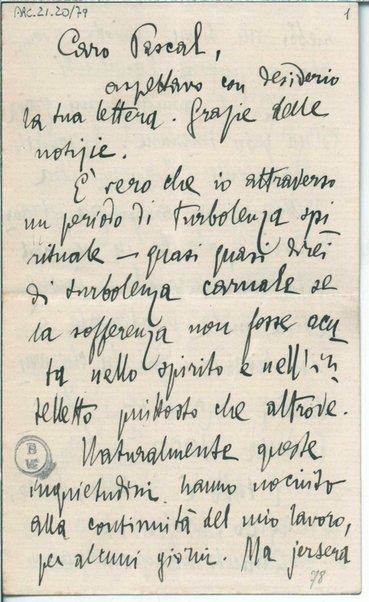 ARC.21.20/79
1
Caro Pascal,
aspettavo con desiderio
la tua lettera. Grazie delle
notizie.
E' vero che io attraverso
un periodo di turbolenza spi
rituale – quasi quasi direi
di turbolenza carnale se
la sofferenza non fosse acu
ta nello spirito e nell'in
telletto piuttosto che altrove.
Naturalmente queste
inquietudini hanno nociuto
alla continuità del mio lavoro,
per alcuni giorni. Ma jersera
78